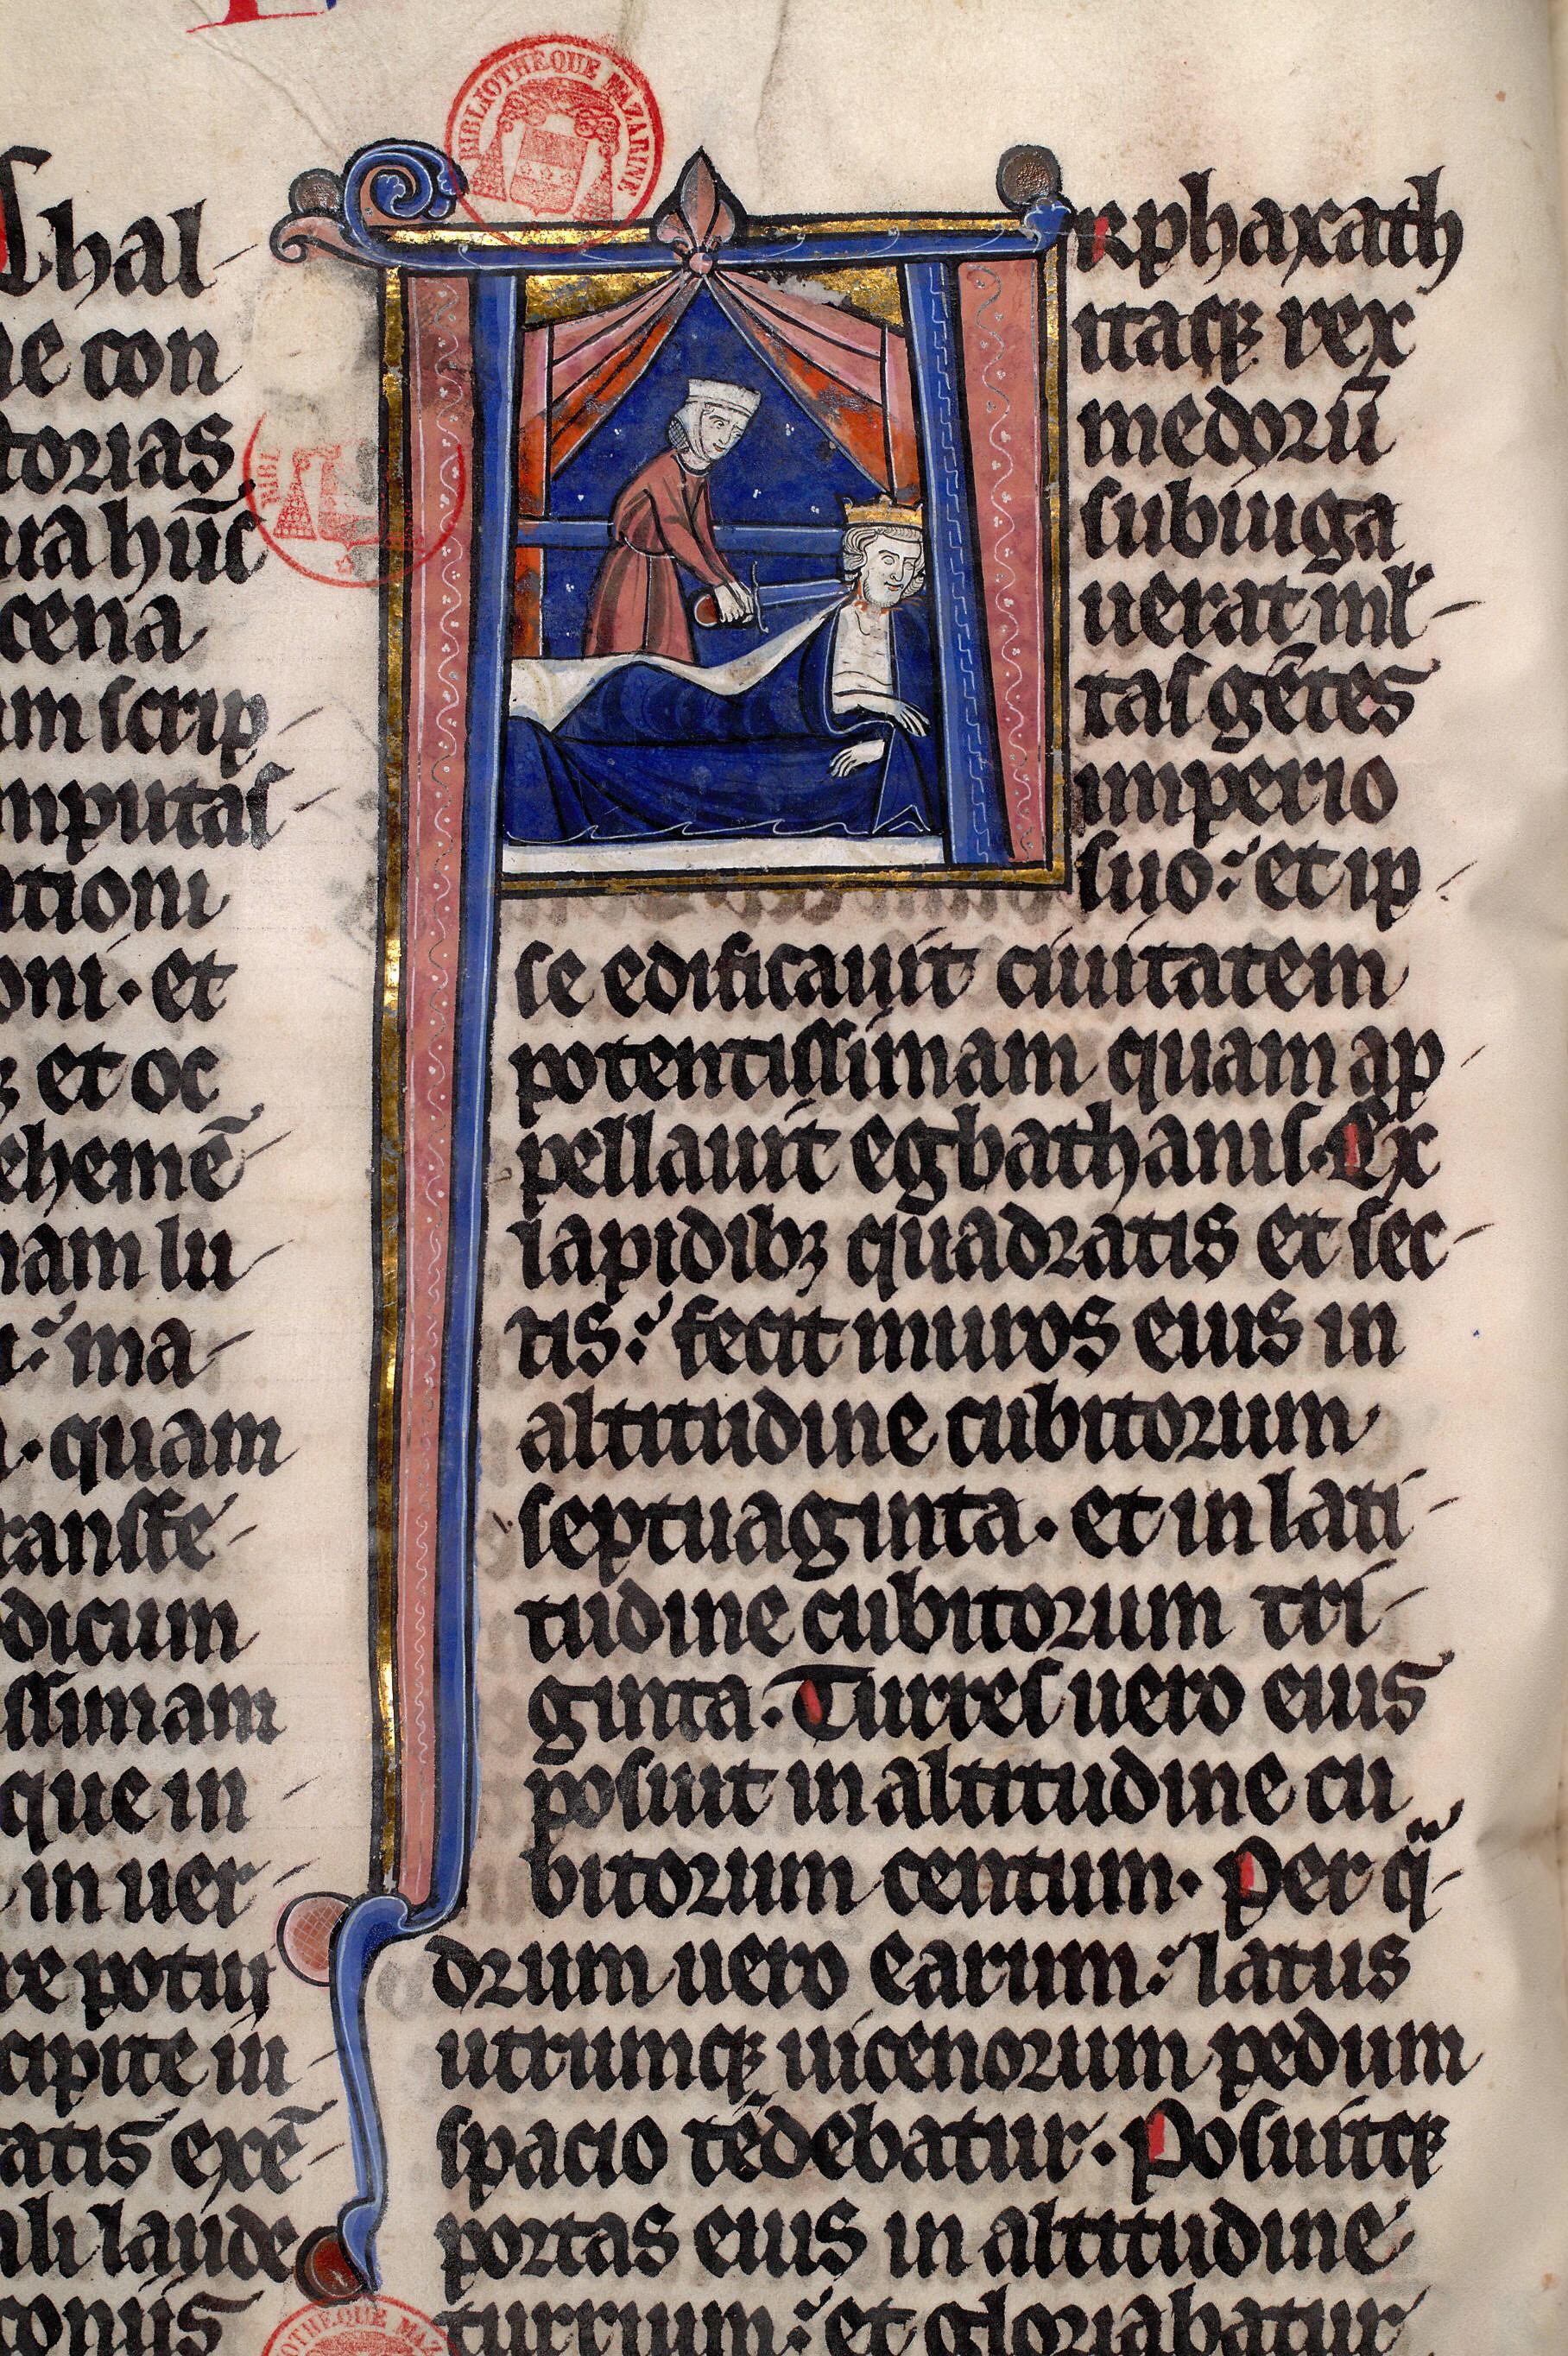 BIBLIOTHEQUE MAZARINE
hal
e con
torias
ua hūc
cena
m scrip
mputas
ationi
oni · et
et oc
ehemē
nam lu
ma
quam
ransfe
dicum
ssimam
que in
in uer
re potuj
cipite in
atis exē
ali laude
coniis
rphaxath
itaqꝫ rex
medorū
subiuga
uerat ml
tas gētes
imperio
suo: et ip
se edificauit ciuitatem
potentissimam quam ap
pellauit egbathanis. Ex
lapidibꝫ quadratis et sec
tis: fecit muros eius in
altitudine cubitorum
septuaginta. et in lati
tudine cubitorum tri
ginta. Turres uero eius
posuit in altitudine cu
bitorum centum. Per q̈
drum uero earum: latus
utrumqꝫ uicenorum pedum
spacio tēdebatur. Posuitqꝫ
portas eius in altitudine
turrium: et gloriabatur